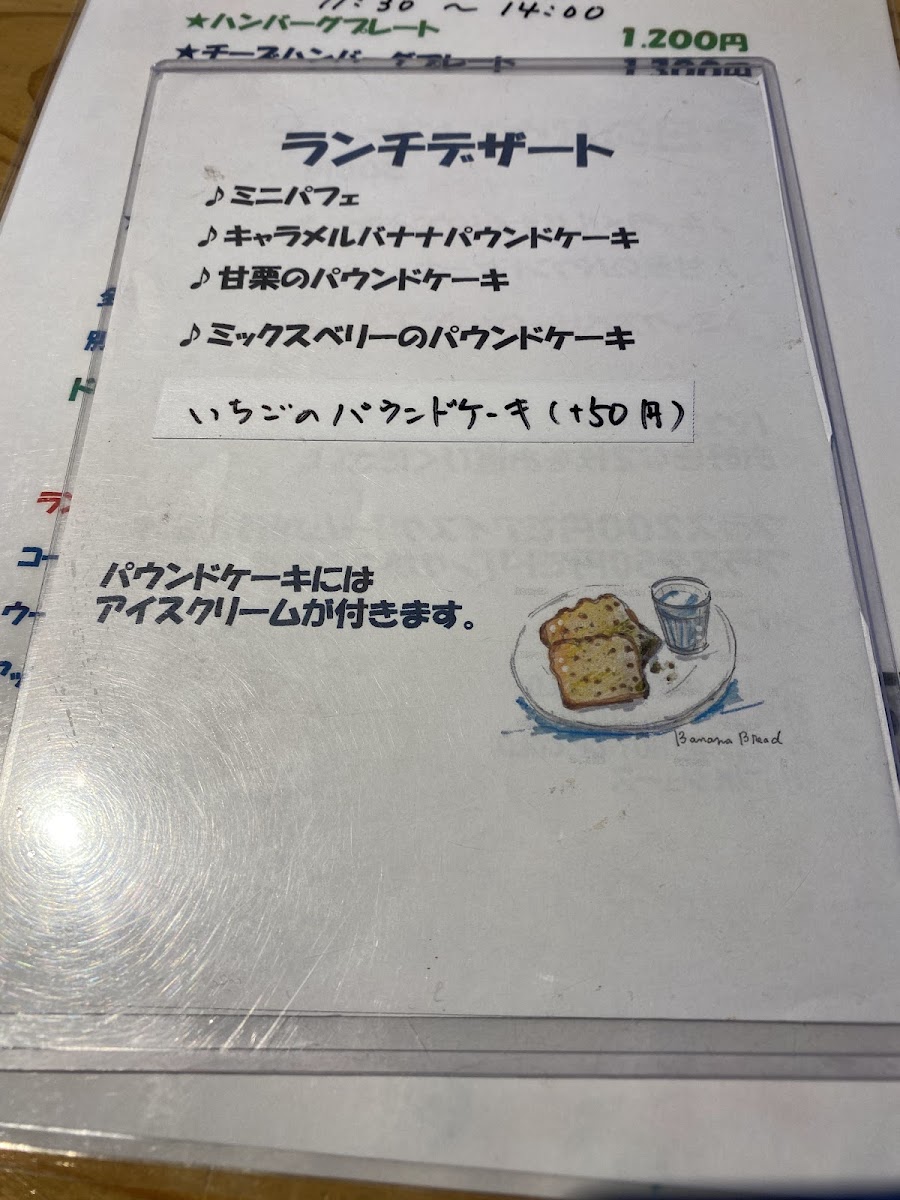 11:30 ～ 14:00
★ハンバーグプレート 1.200円
★チーズハンバーグプレート 1.300円
ランチデザート
♪ミニパフェ
♪キャラメルバナナパウンドケーキ
♪甘栗のパウンドケーキ
♪ミックスベリーのパウンドケーキ
いちごのパウンドケーキ(+50円)
ド
ラン
コー
ウー
パウンドケーキには
アイスクリームが付きます。
Banana Bread